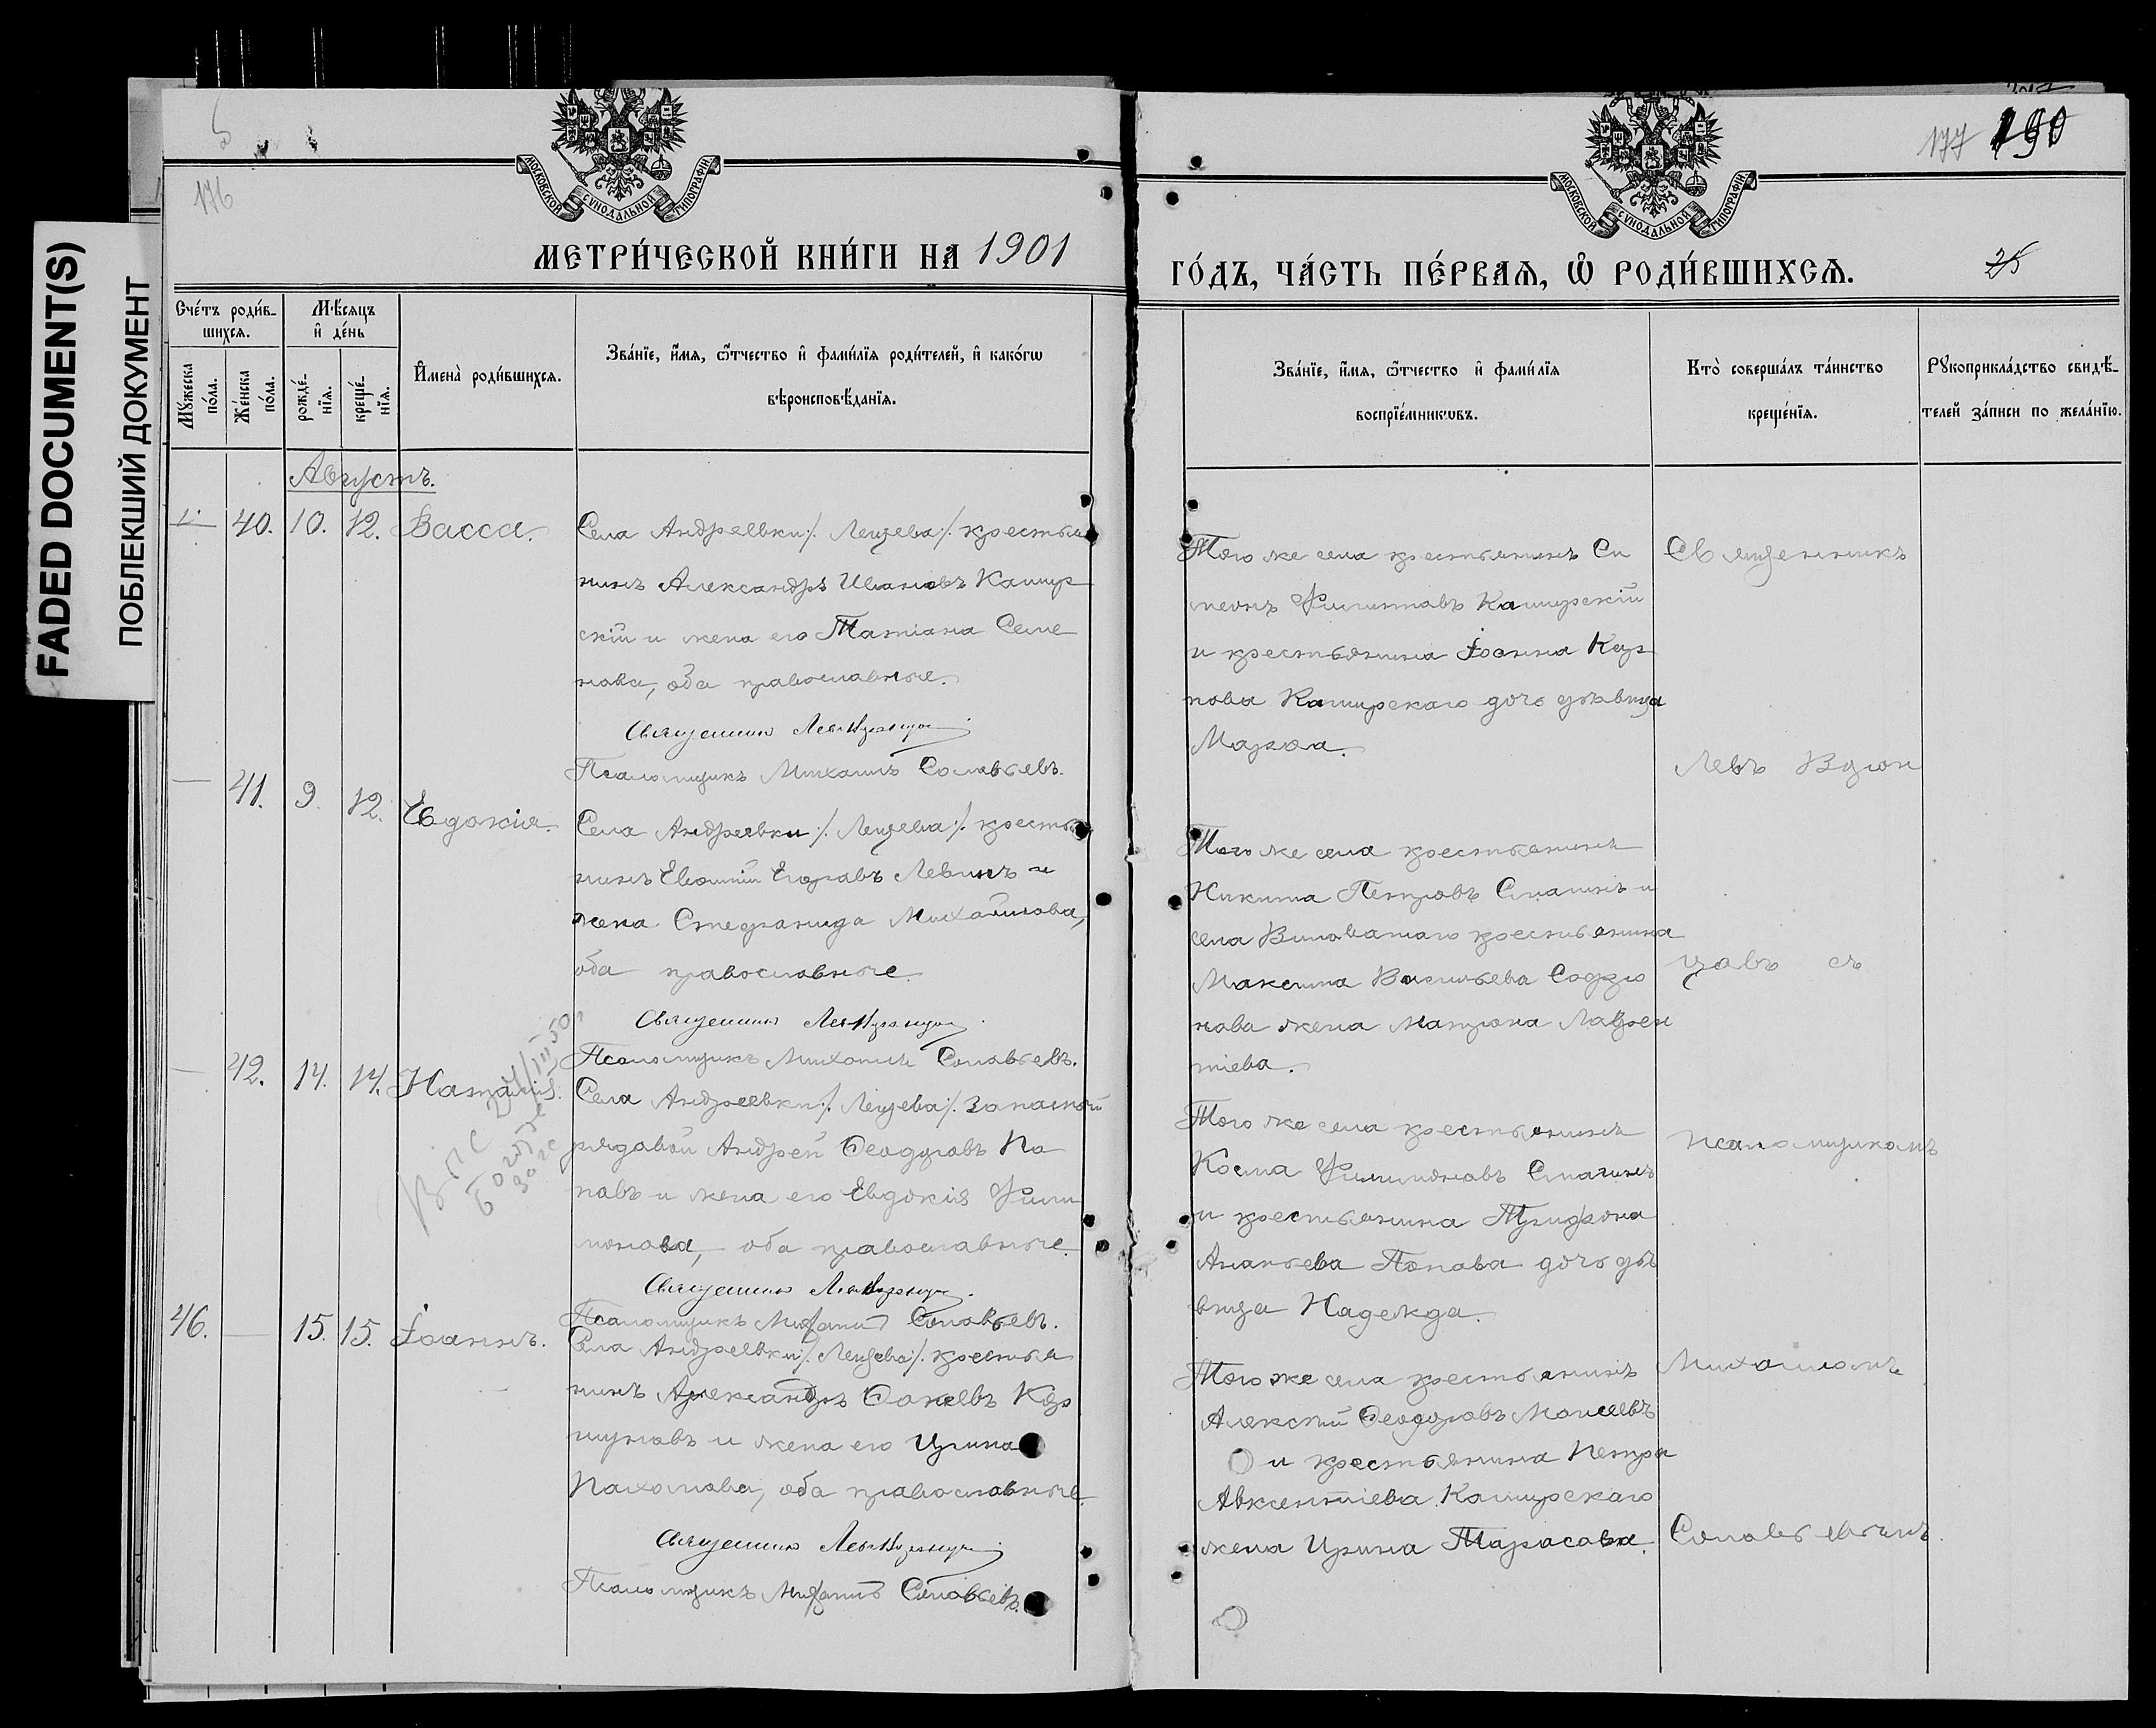 FADED DOCUMENT(S)
ПОБЛЕКШИЙ ДОКУМЕНТ
176
МОСКОВСКОЙ СѴНОДАЛЬНОЙ ТИПОГРАФІИ.
МЕТРИ́ЧЕСКОЙ КНИ́ГИ НА 1901
Сче́тъ роди́в-
шихсѧ.
Мꙋ́жеска
по́ла.
Же́нска
по́ла.
Мѣ́сѧцъ
и҆ де́нь
рожде́-
нїѧ.
креще́-
нїѧ.
И҆мена̀ роди́вшихсѧ.
Зва́нїе, и҆́мѧ, ѻ҆́тчество и҆ фами́лїѧ роди́телей, и҆ како́гѡ
вѣроисповѣ́данїѧ.
Августъ.
40. 10. 12. Васса.
Села Андреевки /. Лещева /. крестья
нинъ Александръ Ивановъ Кашир
скій и жена его Татіана Семе
нова, оба православные.
Священникъ Левъ
Псаломщикъ Михаилъ Соловьевъ.
— 41. 9. 12. Евдокія.
Села Андреевки /. Лещева /. кресть
нинъ Евѳимій Егоровъ Левинъ и
жена Стефанида Михайлова,
оба православные.
Священникъ Левъ
Псаломщикъ Михаилъ Соловьевъ.
— 42. 14. 14. Наталія.
Села Андреевки /. Лещева /. Запасный
рядовой Андрей Ѳеодоровъ По
повъ и жена его Евдокія Фили
монова, оба православные.
Священникъ Левъ
Псаломщикъ Михаилъ Соловьевъ.
46. — 15. 15. Іоаннъ.
Села Андреевки /. Лещева /. крестья
нинъ Александръ Ѳокеевъ Кор
шуновъ и жена его Ирина
Пахомова, оба православные.
Священникъ Левъ
Псаломщикъ Михаилъ Соловьевъ.
177 190
МОСКОВСКОЙ СѴНОДАЛЬНОЙ ТИПОГРАФІИ.
ГО́ДЪ, ЧА́СТЬ ПЕ́РВАѦ, Ѽ РОДИ́ВШИХСѦ.
Зва́нїе, и҆́мѧ, ѻ҆́тчество и҆ фами́лїѧ
воспрїе́мникѡвъ.
Кто̀ соверша́лъ та́инство
креще́нїѧ.
Рꙋкоприкла́дство свидѣ́-
телей за́писи по жела́нїю.
Того же села крестьянинъ Си
меонъ Филиповъ Каширскій
и крестьянина Іоанна Кар
пова Каширскаго дочь дѣвица
Марѳа.
Того же села крестьянинъ
Никита Петровъ Смагинъ и
села Виловатаго крестьянина
Максима Васильева Софро
нова жена Матрона Лаврен
тіева.
Того же села крестьянинъ
Косма Филимоновъ Смагинъ
и крестьянина Трифона
Ананьева Попова дочь дѣ
вица Надежда.
Того же села крестьянинъ
Алексѣй Ѳеодоровъ Моисеевъ
и крестьянина Петра
Авксентіева Каширскаго
жена Ирина Тарасова.
Священникъ
Левъ
цовъ съ
псаломщикомъ
Михаиломъ
Соловьевымъ.